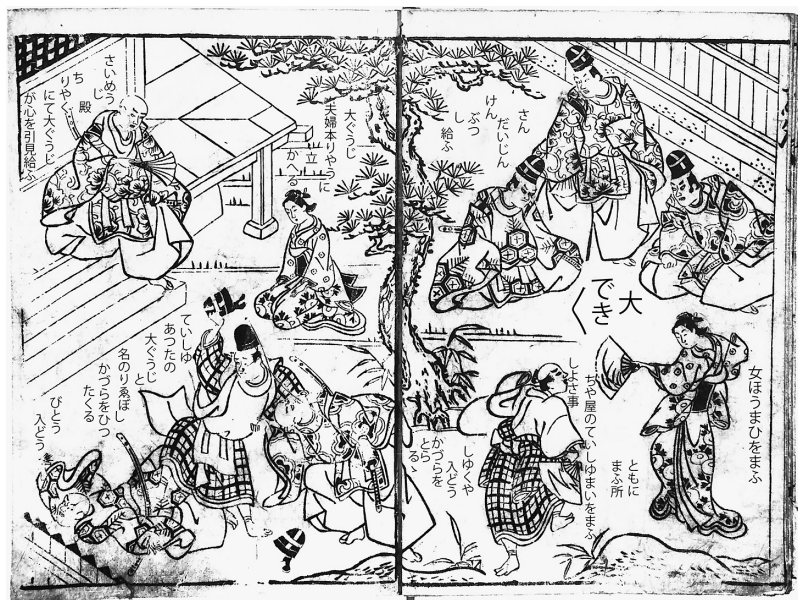 さん
だいじん
けん
ぶつ
し給ふ
大
でき
〱
女ほうまひをまふ
ともに
まふ所
ぢや屋のていしゆまいをまふ
しよさ事
しゆくや
入どう
かづらを
とら
るゝ
大ぐうじ
夫婦本りやうに
立
かへる
さいめう
じ
殿
ち
りやく
にて大ぐうじ
が心を引見給ふ
ていしゆ
あつたの
大ぐうじ
と
名のりゑぼし
かづらをひつ
たくる
びとう
入どう